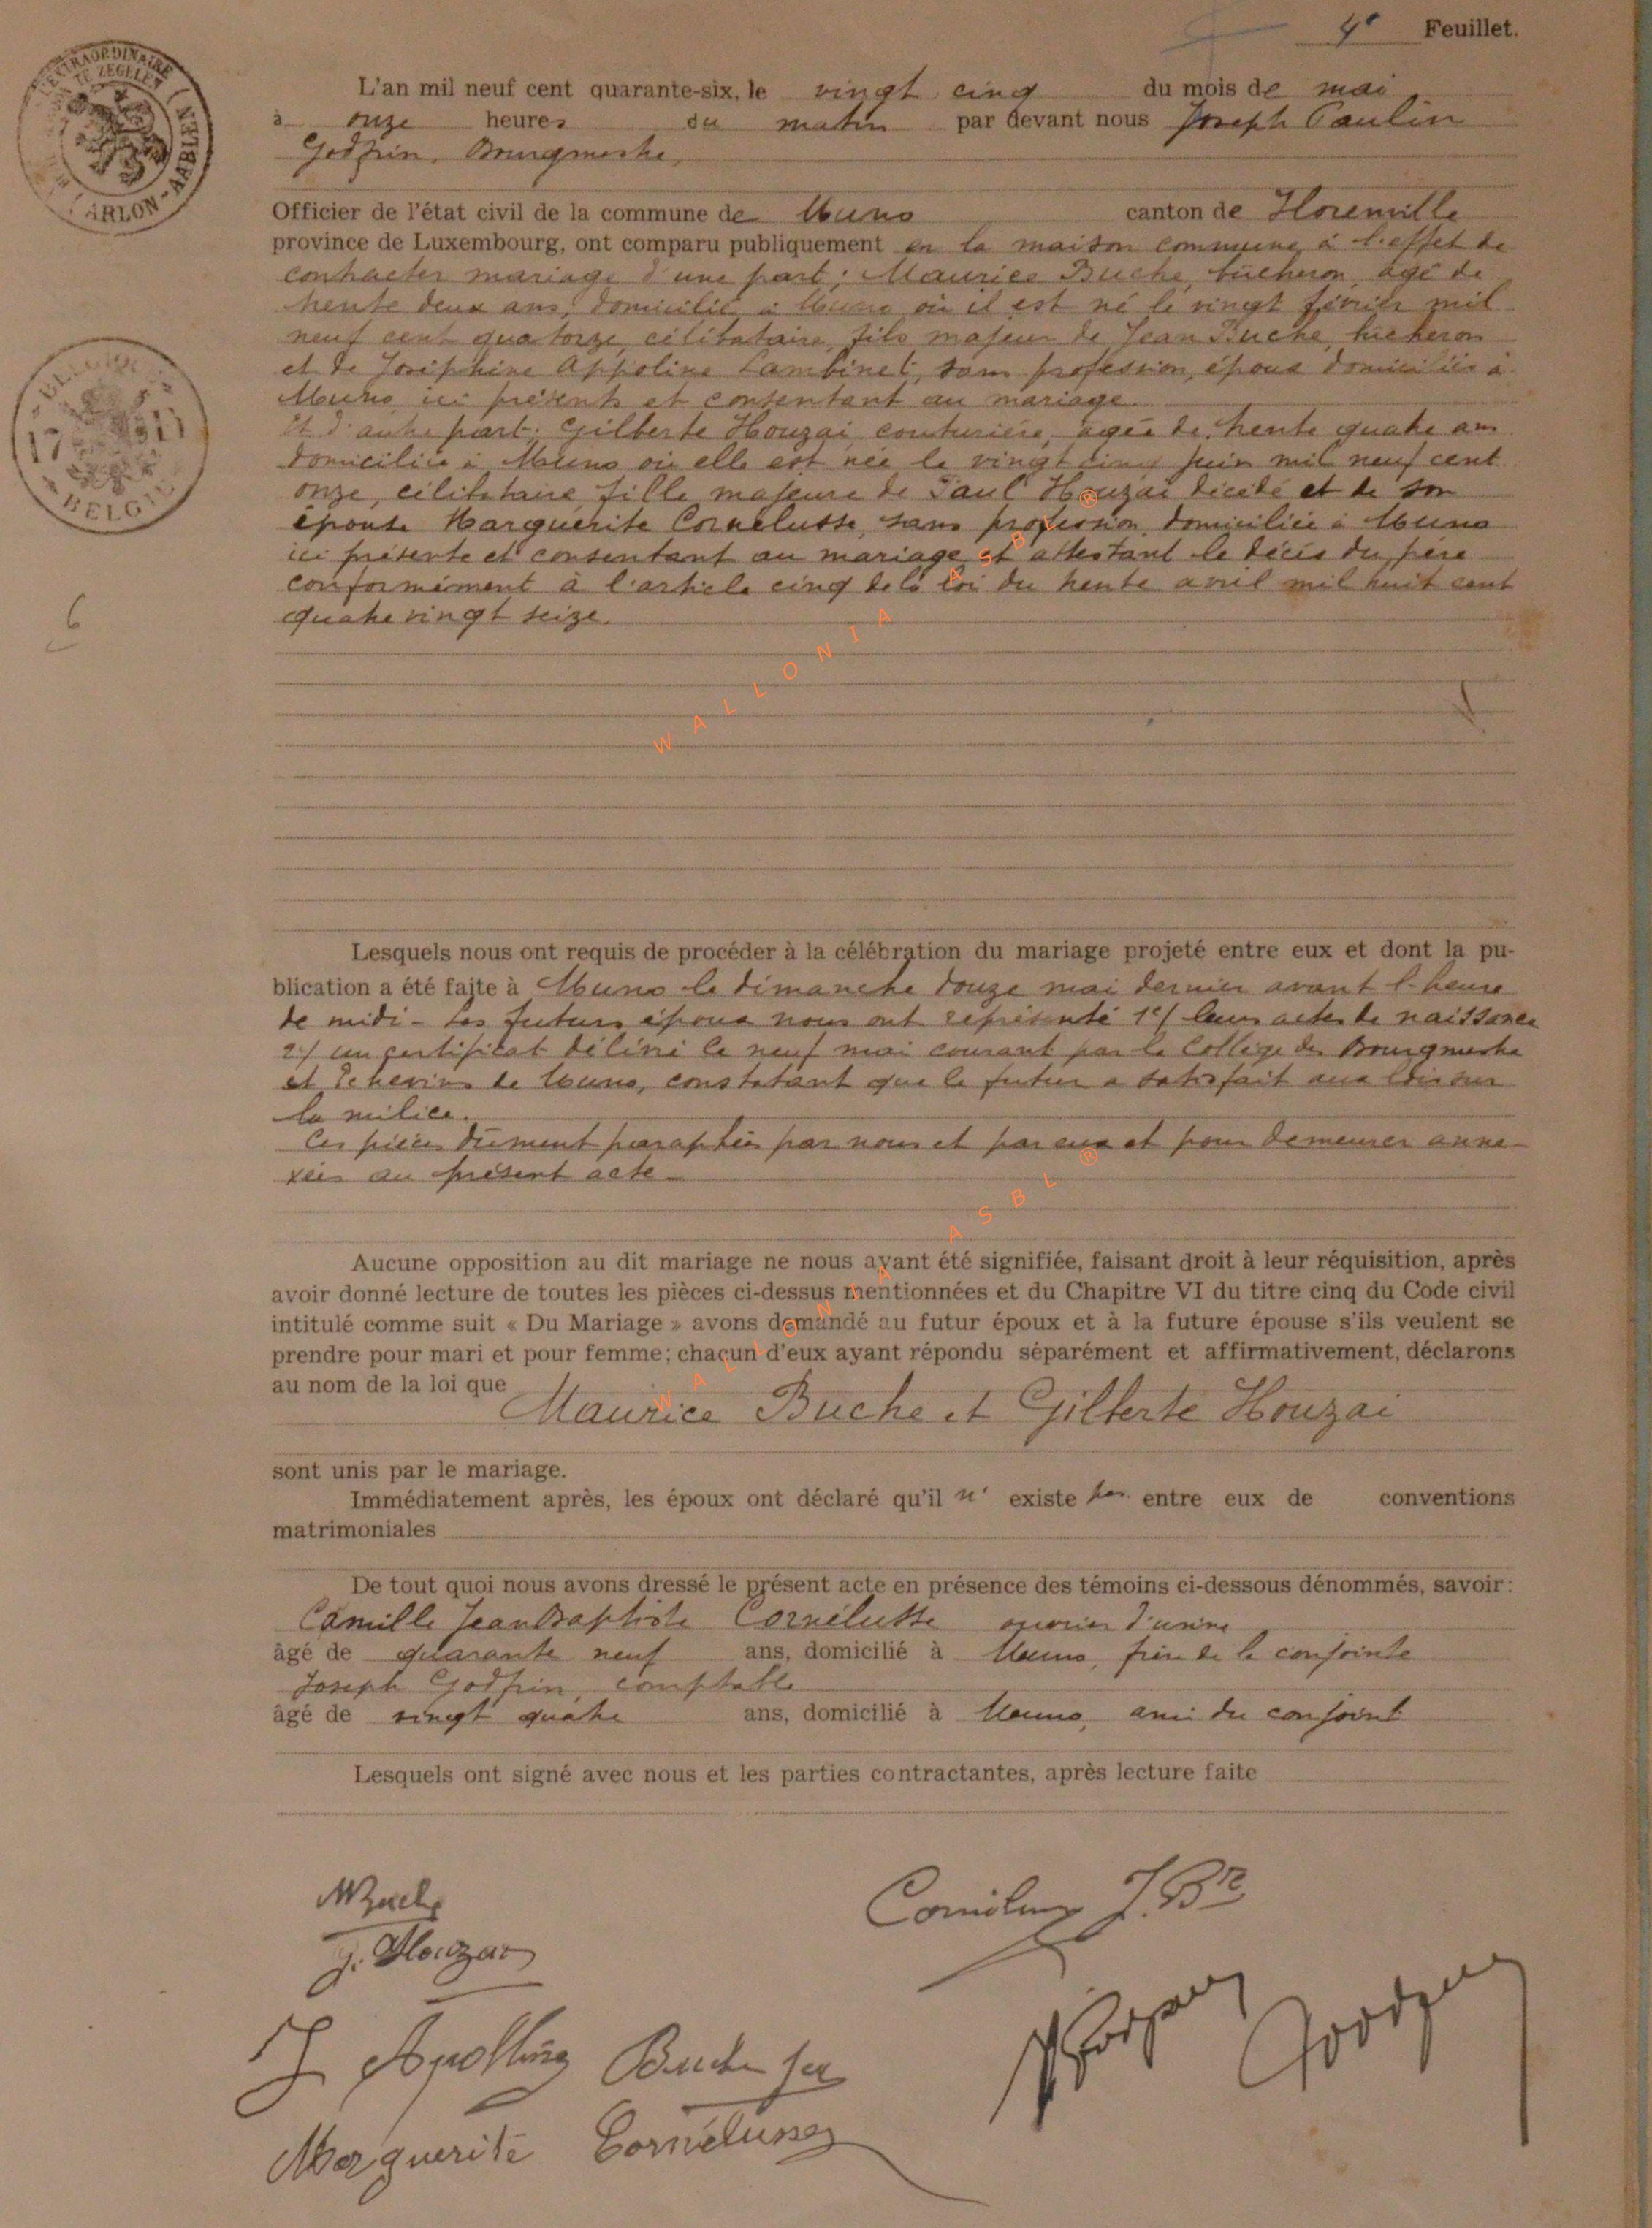 4e Feuillet.
L'EXTRAORDINAIRE
TE ZEGELEN
ARLON-AARLEN
L'an mil neuf cent quarante-six, le vingt cinq du mois de mai
à onze heures du matin par devant nous Joseph Paulin
Godfrin, Bourgmestre,
Officier de l'état civil de la commune de Muno canton de Florenville
province de Luxembourg, ont comparu publiquement en la maison commune, à l'effet de
contracter mariage d'une part; Maurice Buche, bûcheron, agé de
trente deux ans, domicilié à Muno où il est né le vingt février mil
neuf cent quatorze, célibataire, fils majeur de Jean Buche, bûcheron
et de Joséphine Appoline Lambinet, sans profession, époux domiciliés à
Muno, ici présents et consentant au mariage.
Et d'autre part; Gilberte Houzai, couturière, agée de trente quatre ans
domiciliée à Muno où elle est née le vingt cinq juin mil neuf cent
onze, célibataire, fille majeure de Paul Houzai décédé et de son
épouse Marguerite Cornélusse, sans profession, domiciliée à Muno
ici présente et consentant au mariage et attestant le décès du père
conformément à l'article cinq de la loi du trente avril mil huit cent
quatre vingt seize.
BELGIQUE
BELGIE
6
WALLONIA ASBL ®
Lesquels nous ont requis de procéder à la célébration du mariage projeté entre eux et dont la pu-
blication a été faite à Muno le dimanche douze mai dernier avant l'heure
de midi - Les futurs époux nous ont représenté 1e/ leurs actes de naissance
2/ un certificat délivré le neuf mai courant par le Collège des Bourgmestre
et Echevins de Muno, constatant que le futur a satisfait aux lois sur
la milice.
Ces pièces dûment paraphées par nous et par eux et pour demeurer anne-
xées au présent acte
WALLONIA ASBL ®
Aucune opposition au dit mariage ne nous ayant été signifiée, faisant droit à leur réquisition, après
avoir donné lecture de toutes les pièces ci-dessus mentionnées et du Chapitre VI du titre cinq du Code civil
intitulé comme suit « Du Mariage » avons demandé au futur époux et à la future épouse s'ils veulent se
prendre pour mari et pour femme; chacun d'eux ayant répondu séparément et affirmativement, déclarons
au nom de la loi que
Maurice Buche et Gilberte Houzai
sont unis par le mariage.
Immédiatement après, les époux ont déclaré qu'il n' existe pas entre eux de conventions
matrimoniales
De tout quoi nous avons dressé le présent acte en présence des témoins ci-dessous dénommés, savoir:
Camille Jean Baptiste Cornélusse ouvrier d'usine
âgé de quarante neuf ans, domicilié à Muno, frère de la conjointe
Joseph Godfrin, comptable
âgé de vingt quatre ans, domicilié à Muno, ami du conjoint
Lesquels ont signé avec nous et les parties contractantes, après lecture faite
MBuche
G. Houzai
J. Appolline Buche
Marguerite Cornélusse
J. Bte